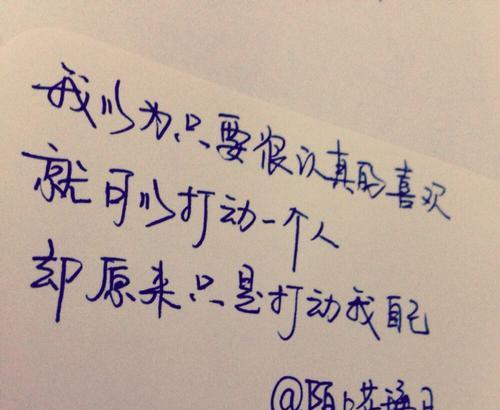 我以为只要很认真的喜欢
就可以打动一个人
却原来只是打动我自己
@陌